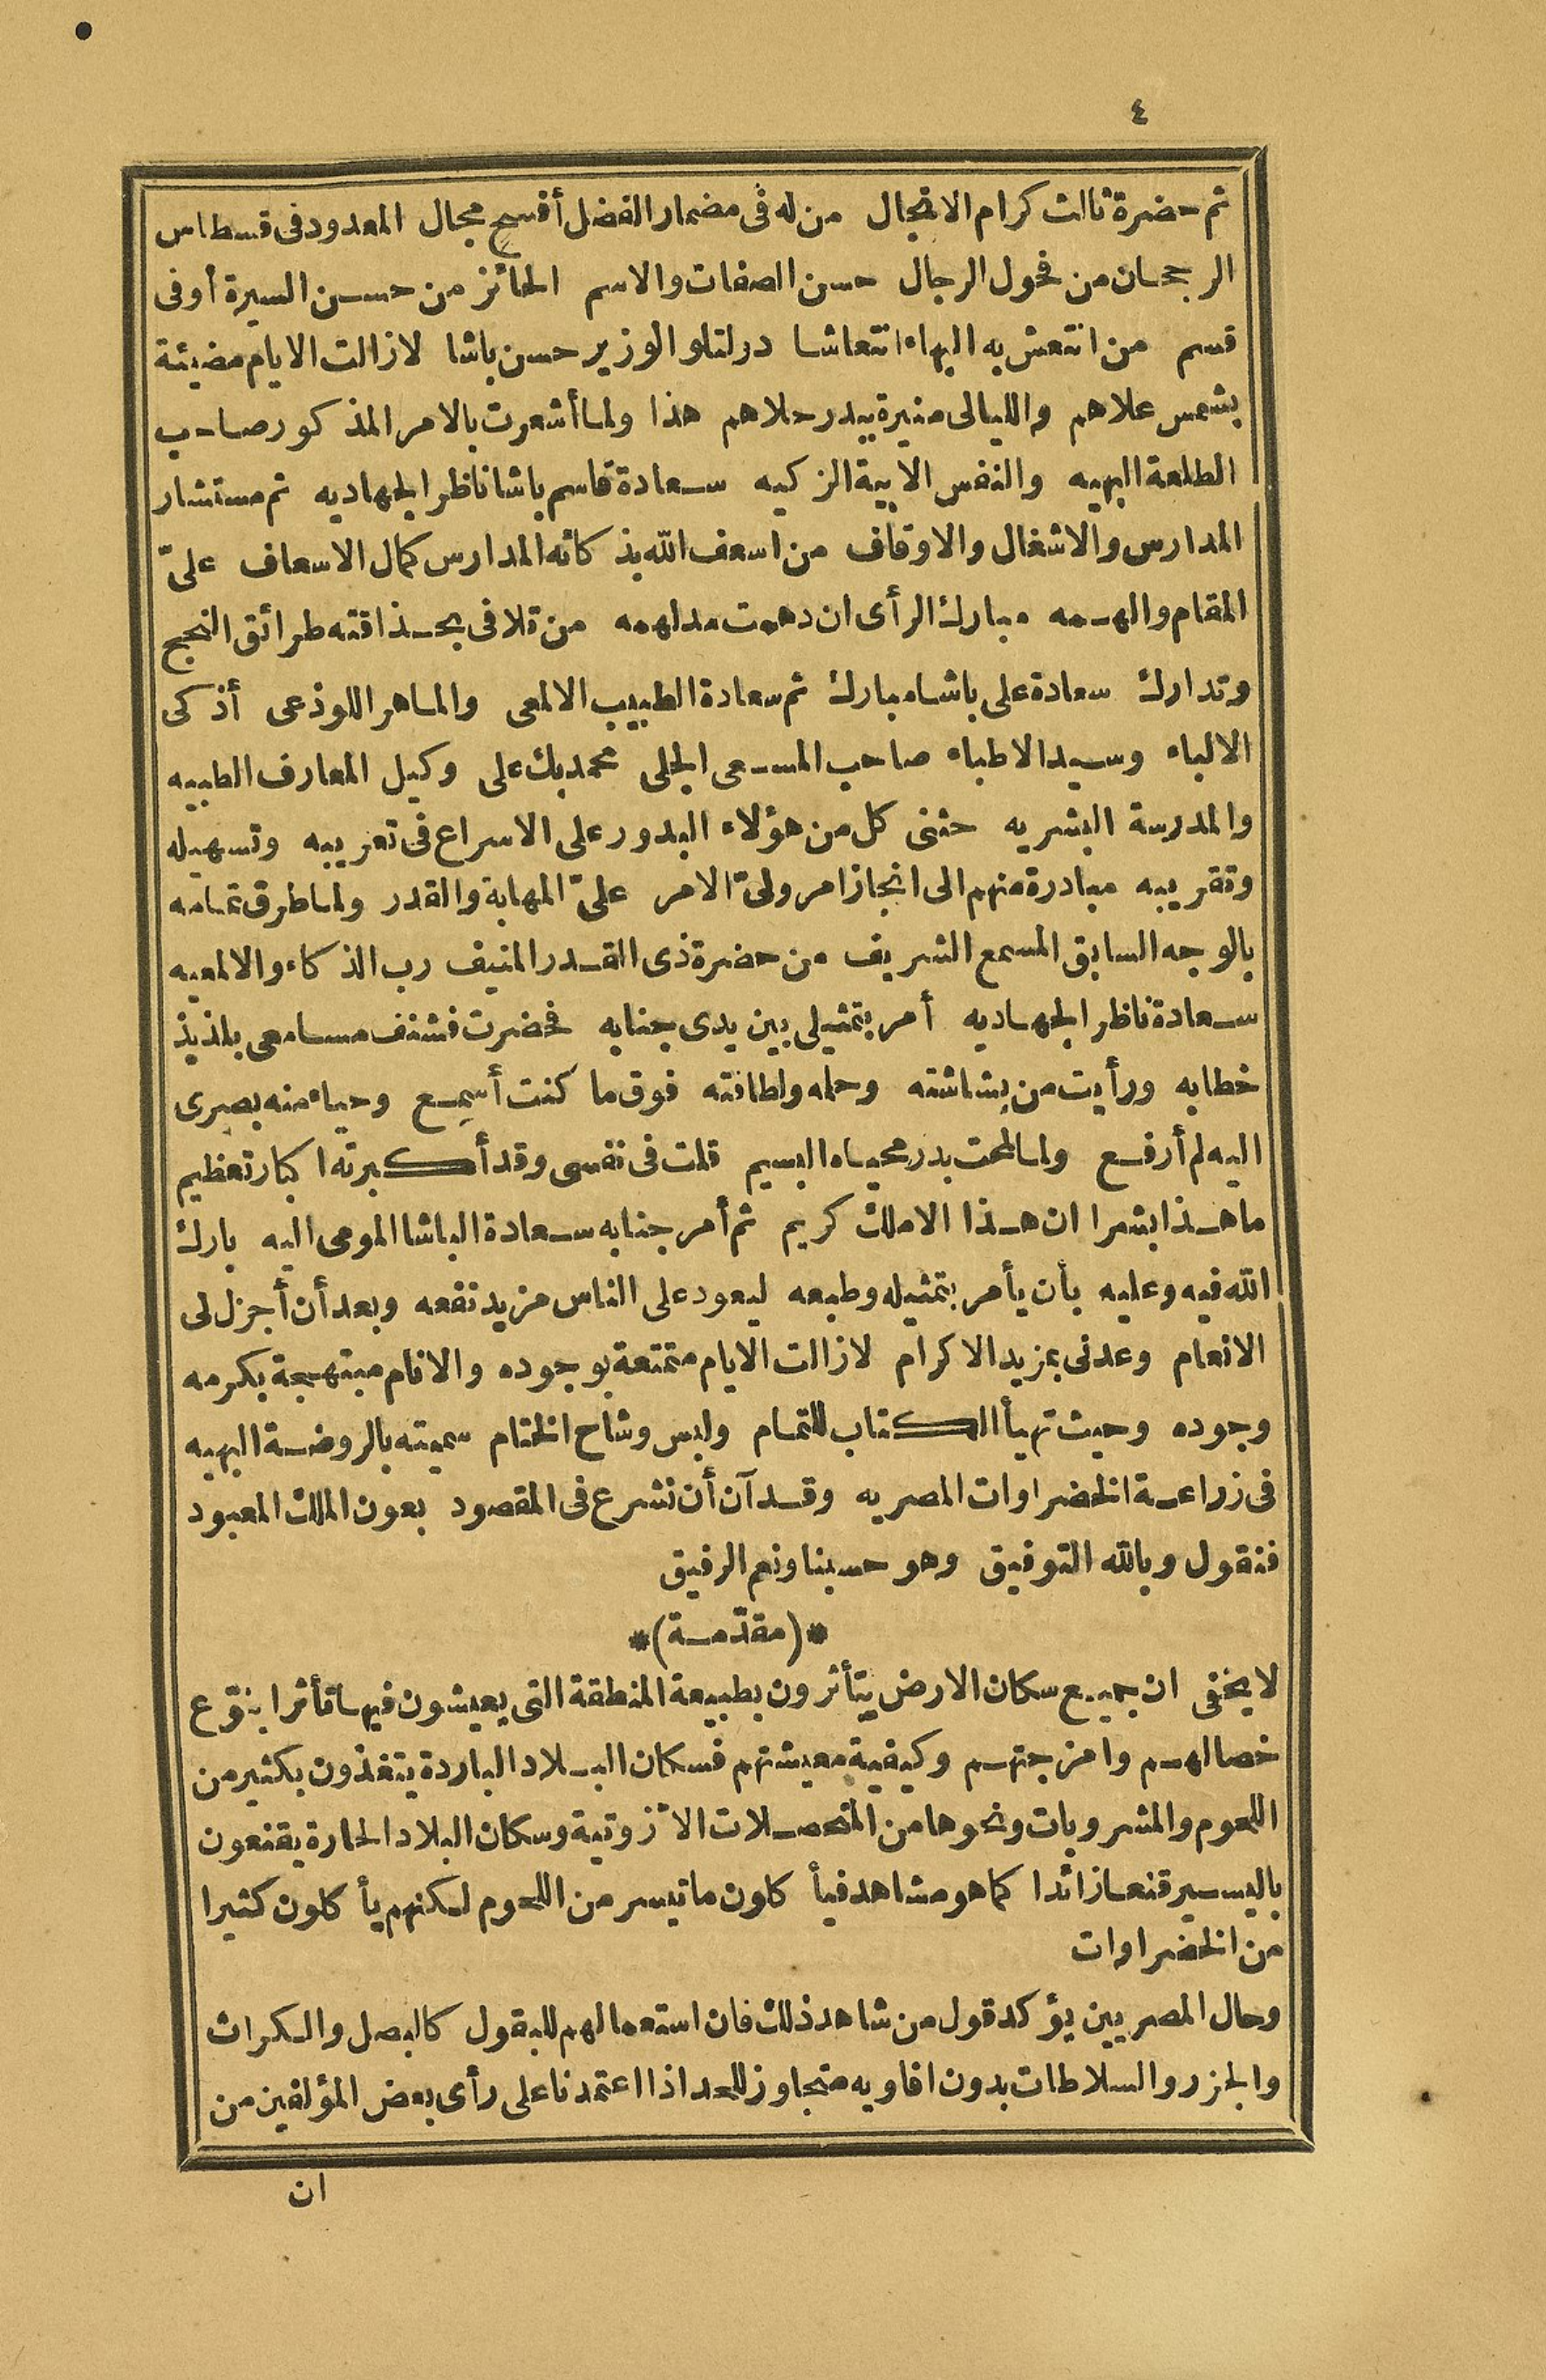 ٤
ثم حضرة ثالث كرام الانجال من له فى مضمار الفضل أفسح مجال المعدود فى قسطاس
الرجحان من فحول الرجال حسن الصفات والاسم الحائز من حسن السيرة أوفى
قسم من انتعش به البهاء انتعاشا دولتلو الوزير حسن باشا لا زالت الايام مضيئة
بشمس علاهم والليالى منيرة ببدر حلاهم هذا ولما أشعرت بالامر المذكور صاحب
الطلعة البهيه والنفس الابية الزكيه سعادة قاسم باشا ناظر الجهاديه ثم مستشار
المدارس والاشغال والاوقاف من اسعف الله بذكائه المدارس كمال الاسعاف علىّ
المقام والهمه مبارك الرأى ان دهمت مدلهمه من تلافى بحذاقته طرائق النجح
وتدارك سعادة على باشا مبارك ثم سعادة الطبيب الالمعى والماهر اللوذعى أذكى
الالباء وسيد الاطباء صاحب المسعى الجلى محمد بك على وكيل المعارف الطبيه
والمدرسة البشريه حثنى كل من هؤلاء البدور على الاسراع فى تعريبه وتسهيله
وتقريبه مبادرة منهم الى انجاز امر ولىّ الامر علىّ المهابة والقدر ولما طرق تمامه
بالوجه السابق المسمع الشريف من حضرة ذى القدر المنيف رب الذكاء والالمعيه
سعادة ناظر الجهاديه أمر بتمثيلى بين يدى جنابه فحضرت فشنف مسامعى بلذيذ
خطابه ورأيت من بشاشته وحلمه ولطافته فوق ما كنت أسمع وحياء منه بصرى
اليه لم أرفع ولما لمحت بدر محياه البسيم قلت فى نفسى وقد أكبرته اكبار تعظيم
ما هذا بشرا ان هذا الا ملك كريم ثم أمر جنابه سعادة الباشا المومى اليه بارك
الله فيه وعليه بأن يأمر بتمثيله وطبعه ليعود على الناس مزيد نفعه وبعد أن أجزل لى
الانعام وعدنى بمزيد الاكرام لا زالت الايام متمتعة بوجوده والانام مبتهجة بكرمه
وجوده وحيث تهيأ الكتاب للتمام ولبس وشاح الختام سميته بالروضة البهيه
فى زراعة الخضراوات المصريه وقد آن أن نشرع فى المقصود بعون الملك المعبود
فنقول وبالله التوفيق وهو حسبنا ونعم الرفيق
*(مقدّمة)*
لا يخفى ان جميع سكان الارض يتأثرون بطبيعة المنطقة التى يعيشون فيها تأثرا ينوّع
خصالهم وامزجتهم وكيفية معيشتهم فسكان البلاد الباردة يتغذون بكثير من
اللحوم والمشروبات ونحوها من المتحصلات الأزوتية وسكان البلاد الحارة يقنعون
باليسير قنعا زائدا كما هو مشاهد فيأكلون ما تيسر من اللحوم لكنهم يأكلون كثيرا
من الخضراوات
وحال المصريين يؤكد قول من شاهد ذلك فان استعمالهم للبقول كالبصل والكراث
والجزر والسلاطات بدون افاويه متجاوز للحد اذا اعتمدنا على رأى بعض المؤلفين من
ان